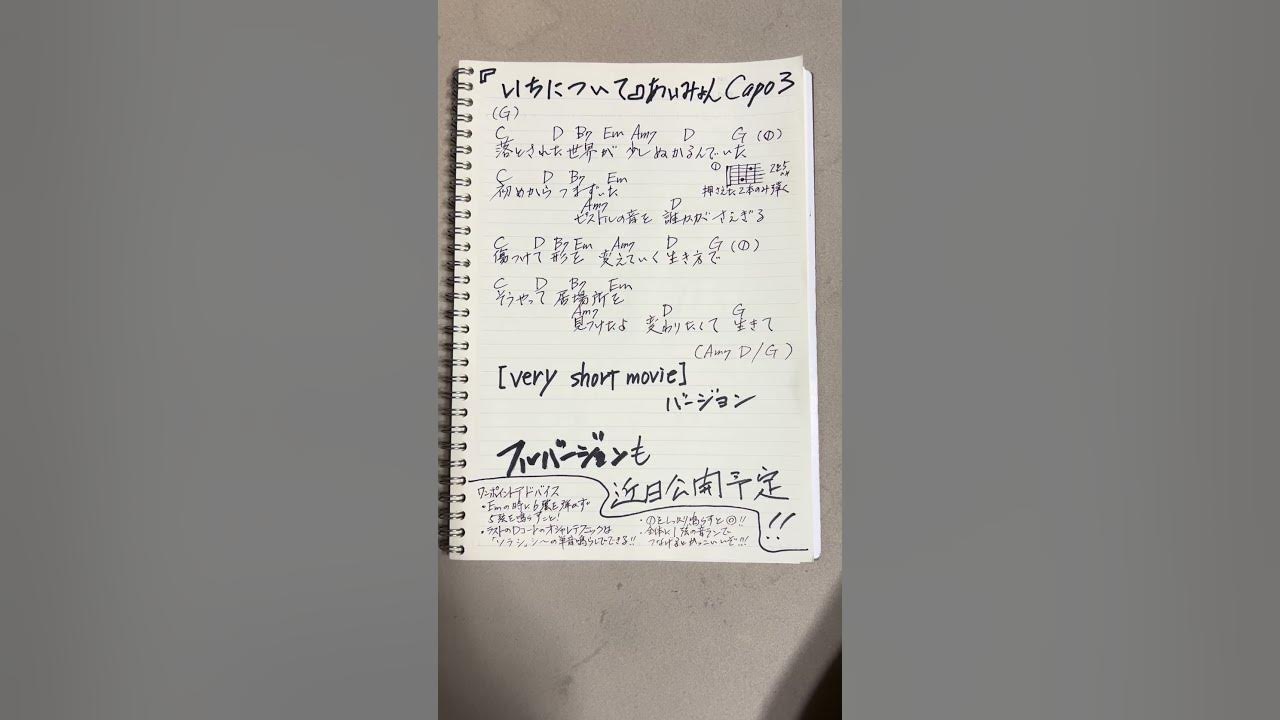 『いちについて』あいみょん Capo3
(G)
C D B7 Em Am7 D G (①)
落とされた世界が 少しぬかるんでいた
① 2と5
C D B7 Em
初めからつまずいた
押さえた2本のみ弾く
Am7 D
ピストルの音を 誰かがさえぎる
C D B7 Em Am7 D G (①)
傷つけて 形を 変えていく 生き方で
C D B7 Em
そうやって 居場所を
Am7 D G
見つけたよ 変わりたくて 生きて
(Am7 D/G)
[very short movie]
バージョン
フルバージョンも
近日公開予定!!
ワンポイントアドバイス
・Emの時に6弦を弾かず
5弦を鳴らすこと!
・ラストのDコードのオシャレテクニックは
「ソラシ」
・①をしっかり鳴らすと◎!!
・全体に1弦の音ランで
つなげるとかっこいいぞ!!!